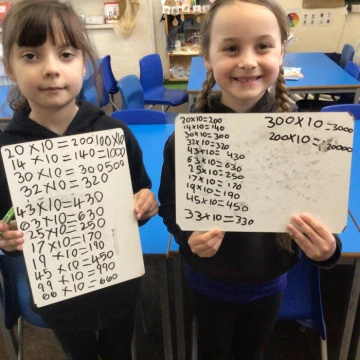 20×10=200 100×10
14×10=140 =1000
30×10=300 500
32×10=320
43×10=430
63×10=630
25×10=250
17×10=170
19×10=190
45×10=450
99×10=990
66×10=660
20×10=200
14×10=140
30×10=300
32×10=320
43×10=430
63×10=630
25×10=250
17×10=170
19×10=190
45×10=450
33×10=330
300×10=3000
200×10=